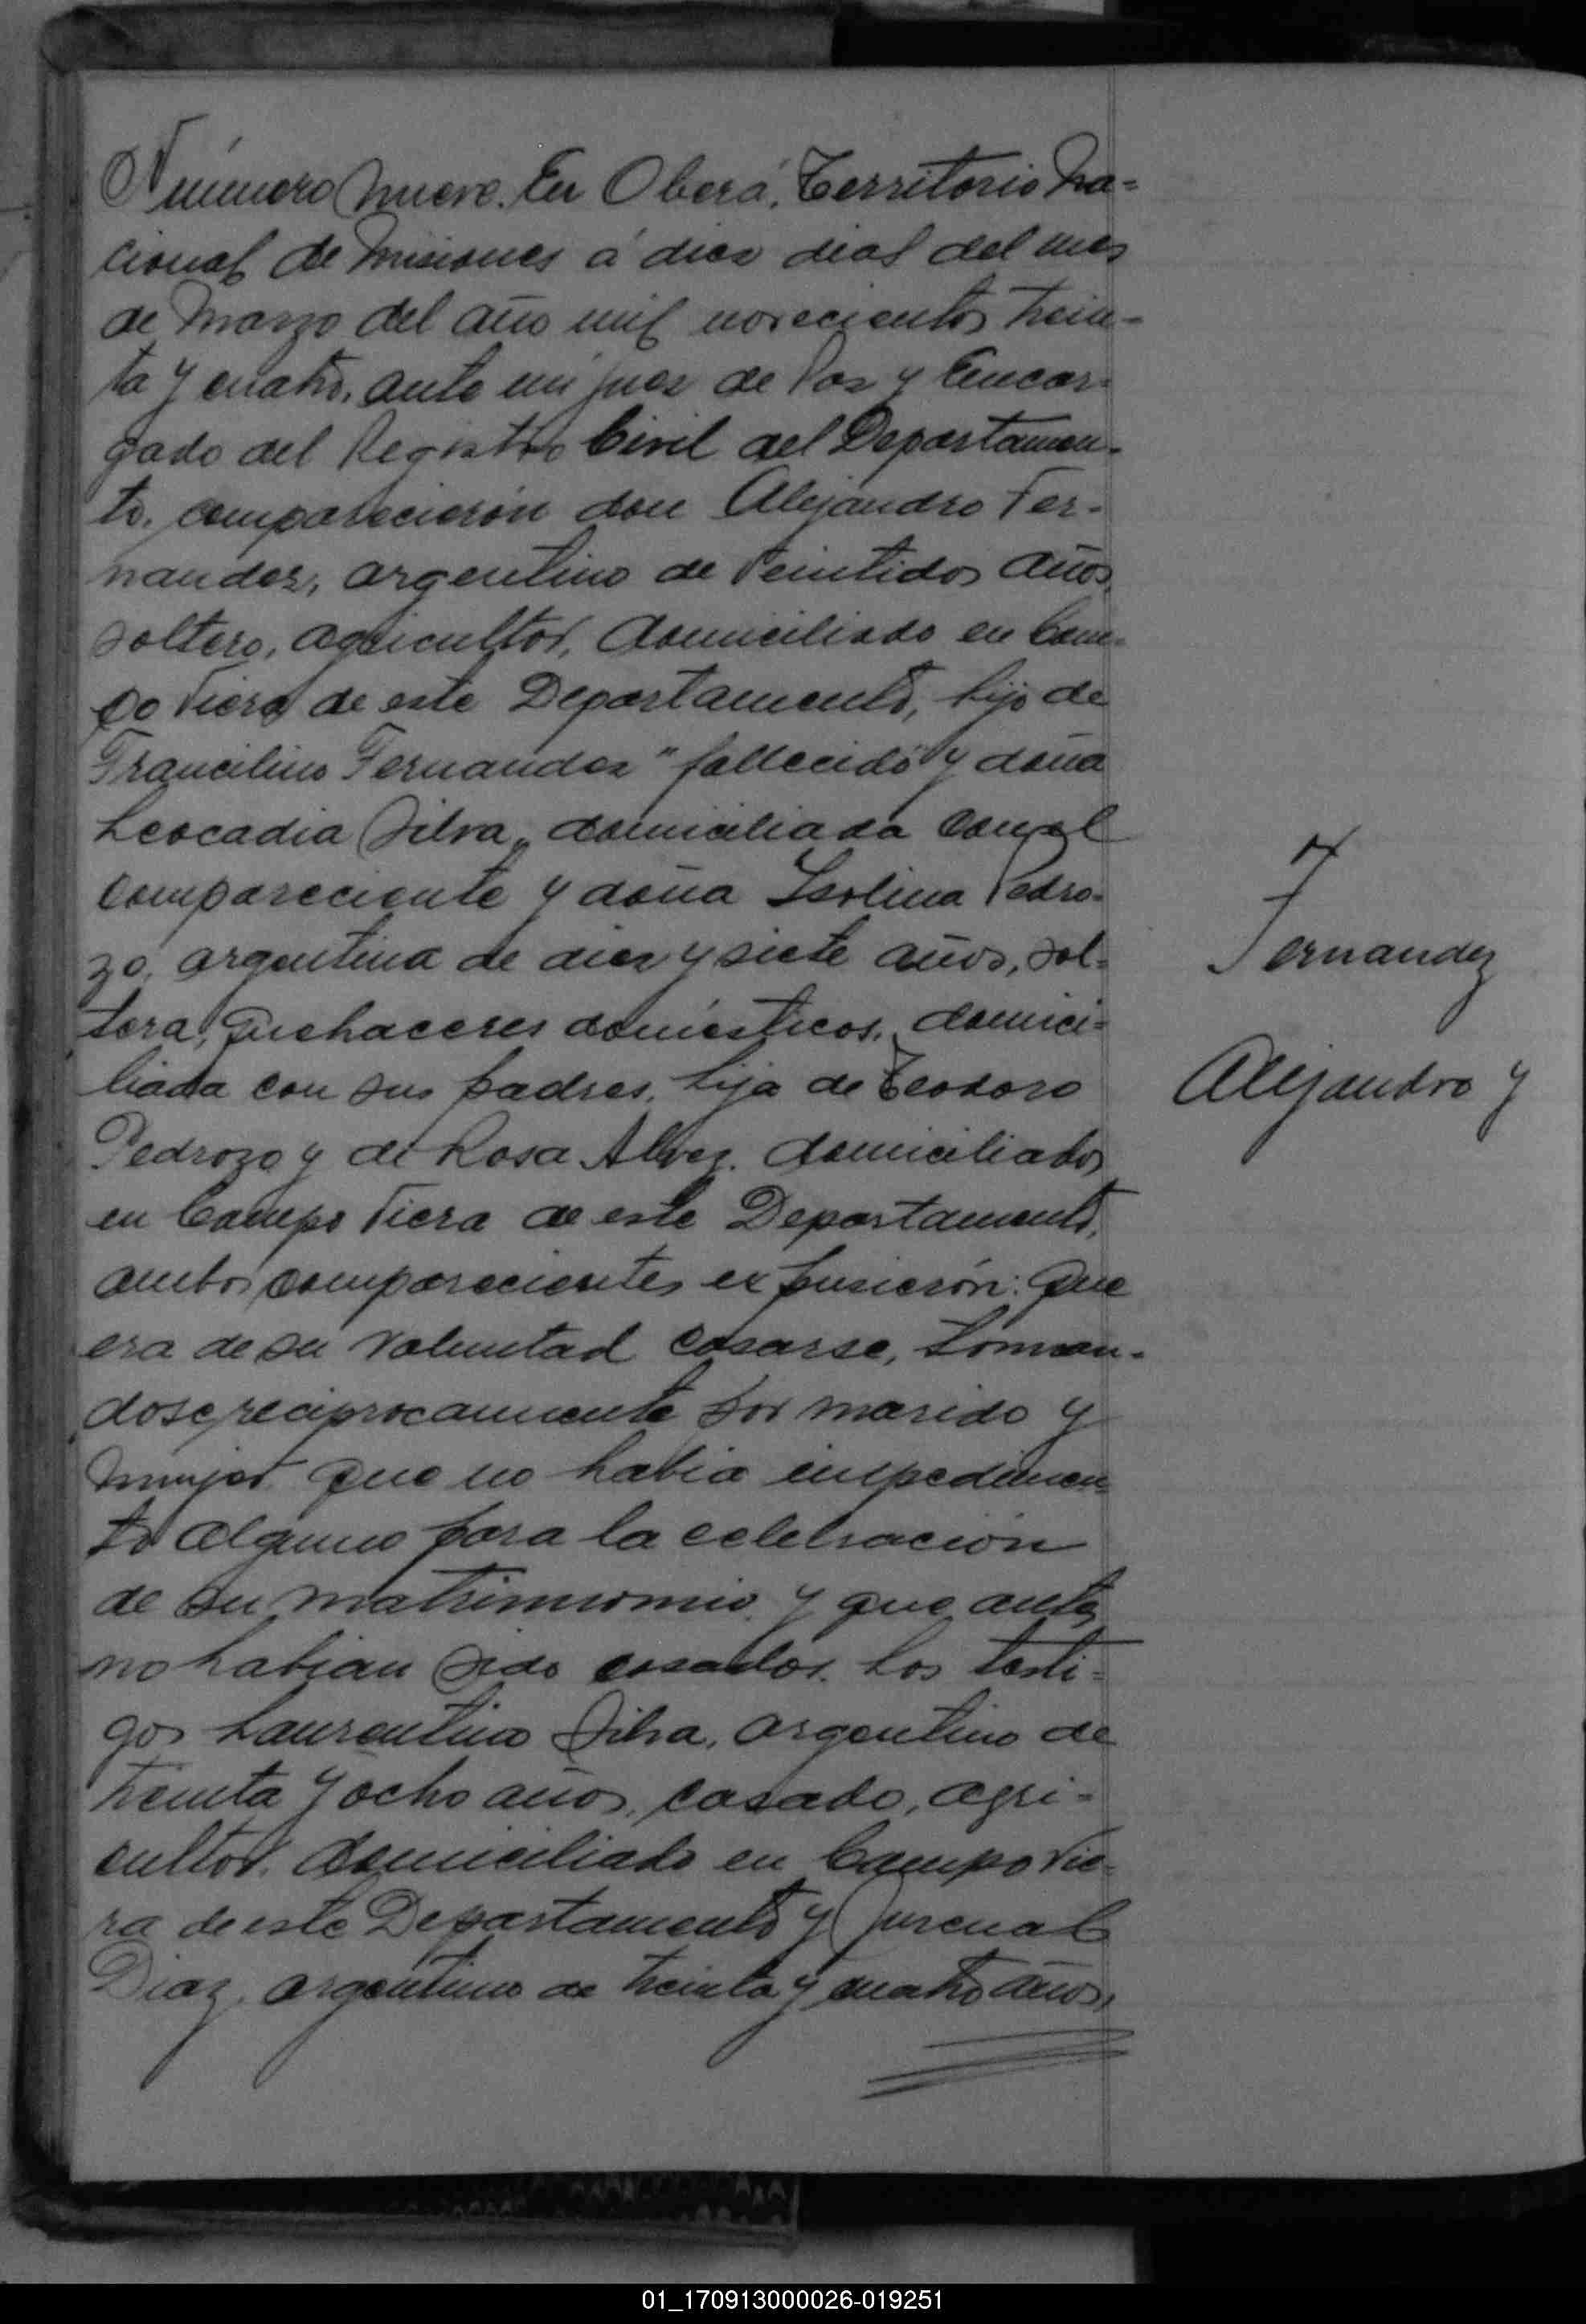 Número Nueve. En Oberá, Territorio Na=
cional de Misiones á diez dias del mes
de Marzo del año mil novecientos trein-
ta y cuatro, ante mi juez de Paz y Encar=
gado del Registro Civil del Departamen-
to, comparecieron don Alejandro Fer-
nandez, argentino de veintidos años,
soltero, agricultor, domiciliado en Cam=
po Viera de este Departamento, hijo de
Francilino Fernandez "fallecido" y doña
Leocadia Silva, domiciliada con el
compareciente y doña Isolina Pedro-
zo, argentina de diez y siete años, sol=
tera, quehaceres domésticos, domici=
liada con sus padres, hija de Teodoro
Pedrozo y de Rosa Alvez, domiciliados
en Campo Viera de este Departamento,
ambos comparecientes expusieron: Que
era de su voluntad casarse, toman-
dose reciprocamente por marido y
mujer que no habia impedimen=
to alguno para la celebracion
de su matrimonio y que antes
no habian sido casados. Los testi=
gos Laurentino Silva, argentino de
treinta y ocho años, casado, agri=
cultor, domiciliado en Campo Vie=
ra de este Departamento y Juvenal
Diaz, argentino de treinta y cuatro años,
Fernandez
Alejandro y
01_170913000026-019251